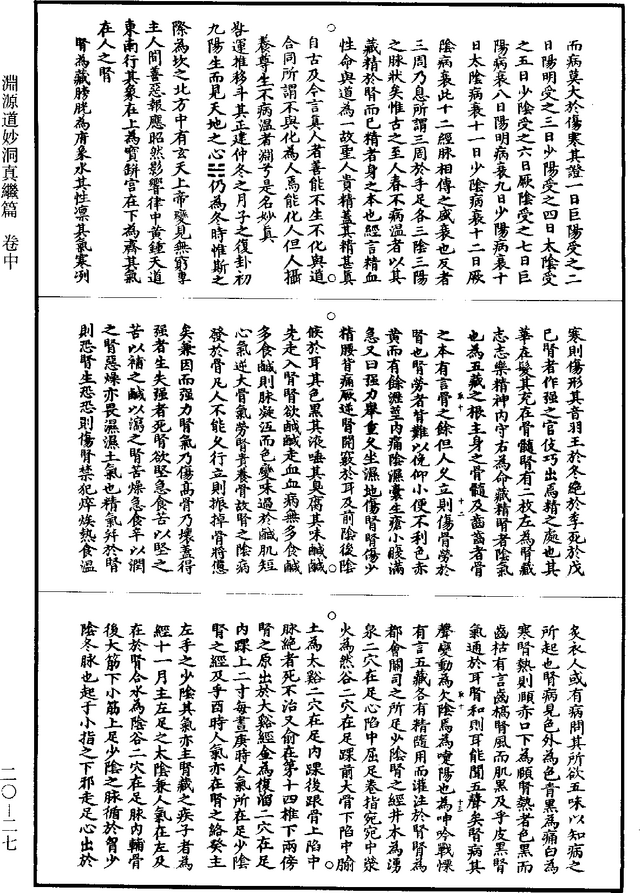 而病莫大於傷寒其證一日巨陽受之二
日陽明受之三日少陽受之四日太陰受
之五日少陰受之六日厥陰受之七日巨
陽病衰八日陽明病衰九日少陽病衰十
日太陰病衰十一日少陰病衰十二日厥
陰病衰此十二經脉相傳之盛衰也反者
三周乃息所謂三周於手足各三陰三陽
之脉狀矣惟古之至人春不病温者以其
藏精於腎而已精者身之本也經言精血
性命與道為一故聖人貴精蓋其精甚真
自古及今言真人者善能不生不化與道
合同所謂不與化為人焉能化人但人攝
養尊生不病温者淵兮是名妙真
咎運推移斗其正建仲冬之月子之復卦初
九陽生而見天地之心䷗仍為冬時惟斯之
際為坎之北方中有玄天上帝變見無窮專
主人間善惡報應昭然影響律中黄鍾天道
東南行其象在上為寶缾宫在下為齊其氣
在人之腎
腎為藏膀胱為府象水其性凛其氣寒冽
寒則傷形其音羽王於冬絶於季死於戊
巳腎者作强之官伎巧出焉精之處也其
華在髮其充在骨髓腎有二枚左為腎藏
志志樂精神内守右為命藏精腎者陰氣
也為五藏之根主身之骨髓及齒齒者骨
之本有言骨之餘但人久立則傷骨勞於
腎也腎勞者背難以俛仰小便不利色赤
黄而有餘瀝莖内痛陰濕囊生瘡小腹滿
急又曰强力舉重久坐濕地傷腎腎傷少
精腰背痛厥逆腎開竅於耳及前陰後陰
候於耳其色黑其液唾其臭腐其味鹹鹹
先走入腎腎欲鹹鹹走血血病無多食鹹
多食鹹則脉凝沍而色變味過於鹹肌短
心氣逆大骨氣勞腎貴養骨故腎之陰病
發於骨凡人不能久行立則振掉骨將憊
矣兼因而强力腎氣乃傷高骨乃壞蓋得
强者生失强者死腎欲堅急食苦以堅之
苦以補之鹹以瀉之腎苦燥急食辛以潤
之腎惡燥亦畏濕濕土氣也精氣并於腎
則恐腎生恐恐則傷腎禁犯焠㶼熱食温
炙衣人或有病問其所欲五味以知病之
所起也腎病見色外為色青黑為痛白為
寒腎熱則頤赤口下為頤腎熱者色黑而
齒枯有言齒槁腎風而肌黑及乎皮黑腎
氣通於耳腎和則耳能聞五聲矣腎病其
聲變動為欠陰焉為嚏陽也為呻吟戰慄
有言五藏各有精隨用而灌注於腎腎為
都會關司之所足少陰腎之經井木為湧
泉二穴在足心陷中屈足卷指宛宛中滎
火為然谷二穴在足踝前大骨下陷中腧
土為太谿二穴在足内踝後跟骨上陷中
脉絶者死不治又俞在第十四椎下兩傍
腎之原出於大谿經金為復溜二穴在足
内踝上二寸每晝庚時人氣所在足少陰
腎之經及乎酉時人氣亦在腎之絡癸主
左手之少陰其氣亦主腎藏之疾子者為
經十一月主左足之太陰兼人氣在左及
在於腎合水為陰谷二穴在足膝内輔骨
後大筋下小筋上足少陰之脉循於胷少
陰冬脉也起于小指之下邪走足心出於
淵源道妙洞真繼篇 卷中
二〇—二七